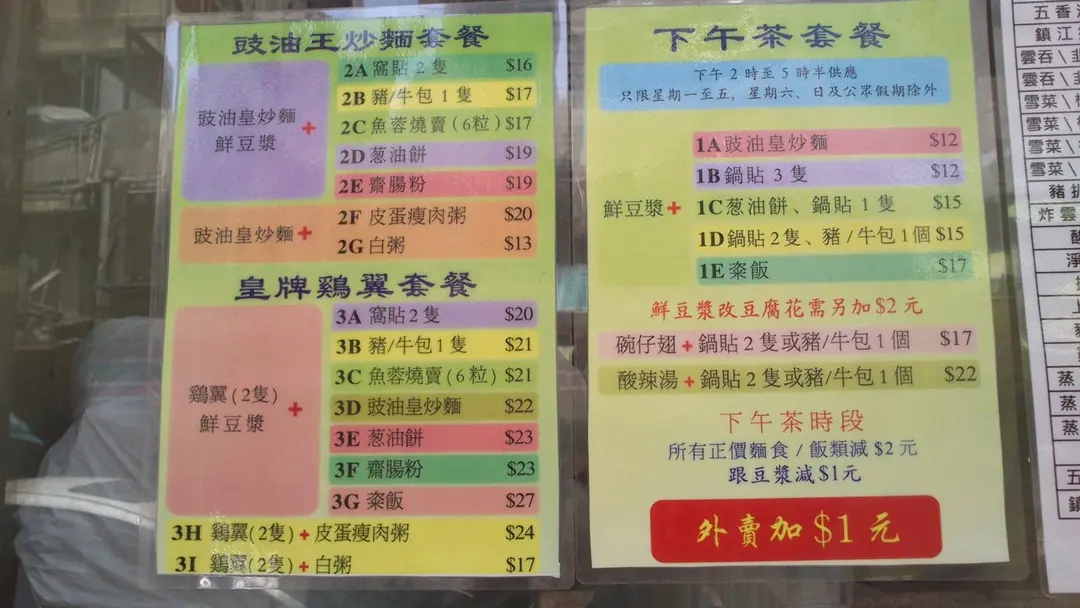 豉油王炒麵套餐
豉油皇炒麵
鮮豆漿
+
2A 窩貼 2 隻 $16
2B 豬/牛包 1 隻 $17
2C 魚蓉燒賣 (6粒) $17
2D 葱油餅 $19
2E 齋腸粉 $19
豉油皇炒麵 +
2F 皮蛋瘦肉粥 $20
2G 白粥 $13
皇牌鷄翼套餐
鷄翼(2隻)
鮮豆漿
+
3A 窩貼 2 隻 $20
3B 豬/牛包 1 隻 $21
3C 魚蓉燒賣 (6 粒) $21
3D 豉油皇炒麵 $22
3E 葱油餅 $23
3F 齋腸粉 $23
3G 粢飯 $27
3H 鷄翼(2隻) + 皮蛋瘦肉粥 $24
3I 鷄翼(2隻) + 白粥 $17
下午茶套餐
下午 2 時至 5 時半供應
只限星期一至五, 星期六、日及公眾假期除外
鮮豆漿 +
1A 豉油皇炒麵 $12
1B 鍋貼 3 隻 $12
1C 葱油餅、鍋貼 1 隻 $15
1D 鍋貼 2 隻、豬 / 牛包 1 個 $15
1E 粢飯 $17
鮮豆漿改豆腐花需另加 $2 元
碗仔翅 + 鍋貼 2 隻或豬/牛包 1 個 $17
酸辣湯 + 鍋貼 2 隻或豬/牛包 1 個 $22
下午茶時段
所有正價麵食 / 飯類減 $2 元
跟豆漿減 $1元
外賣加 $1 元
五香
鎮江
雲吞 \
雲吞 \
雪菜 \
雪菜 \
雪菜 \
雪菜 \
豬
炸雲
蒸
蒸
蒸
五
鎮